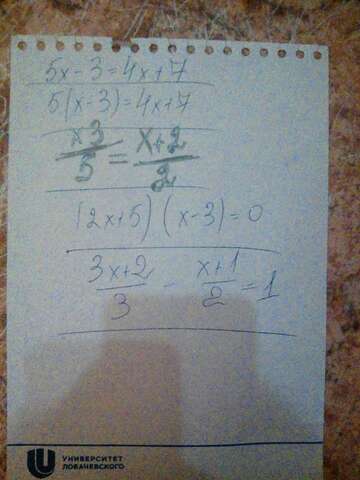 5x-3=4x+7
5(x-3)=4x+7
x3/5=x+2/2
(2x+5)(x-3)=0
3x+2/3-x+1/2=1
УНИВЕРСИТЕТ
ЛОБАЧЕВСКОГО